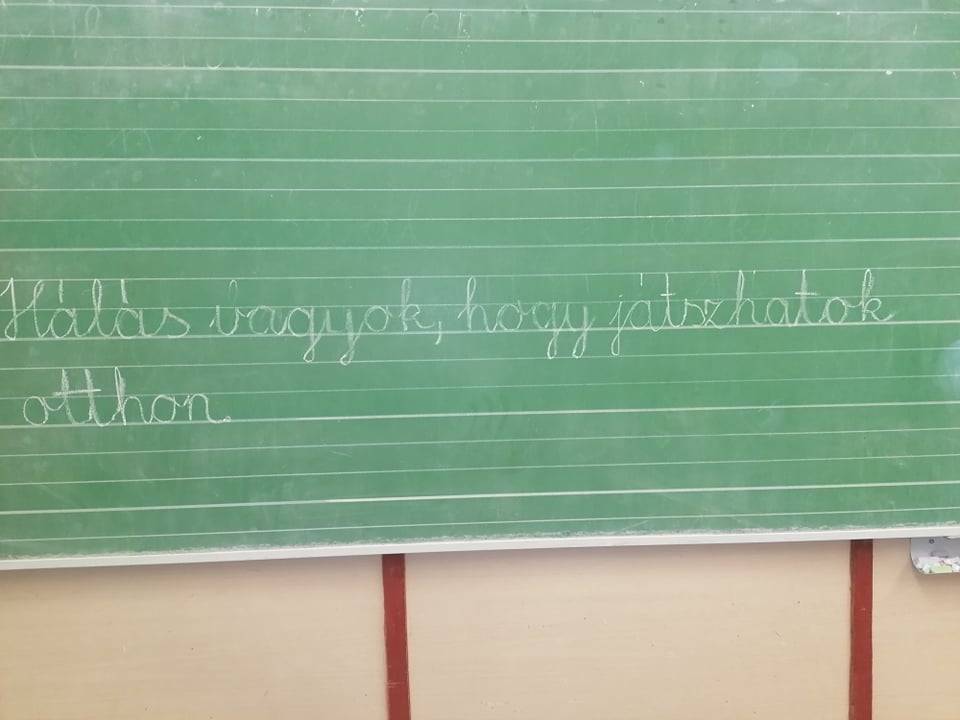 Hálás vagyok, hogy játszhatok
otthon.